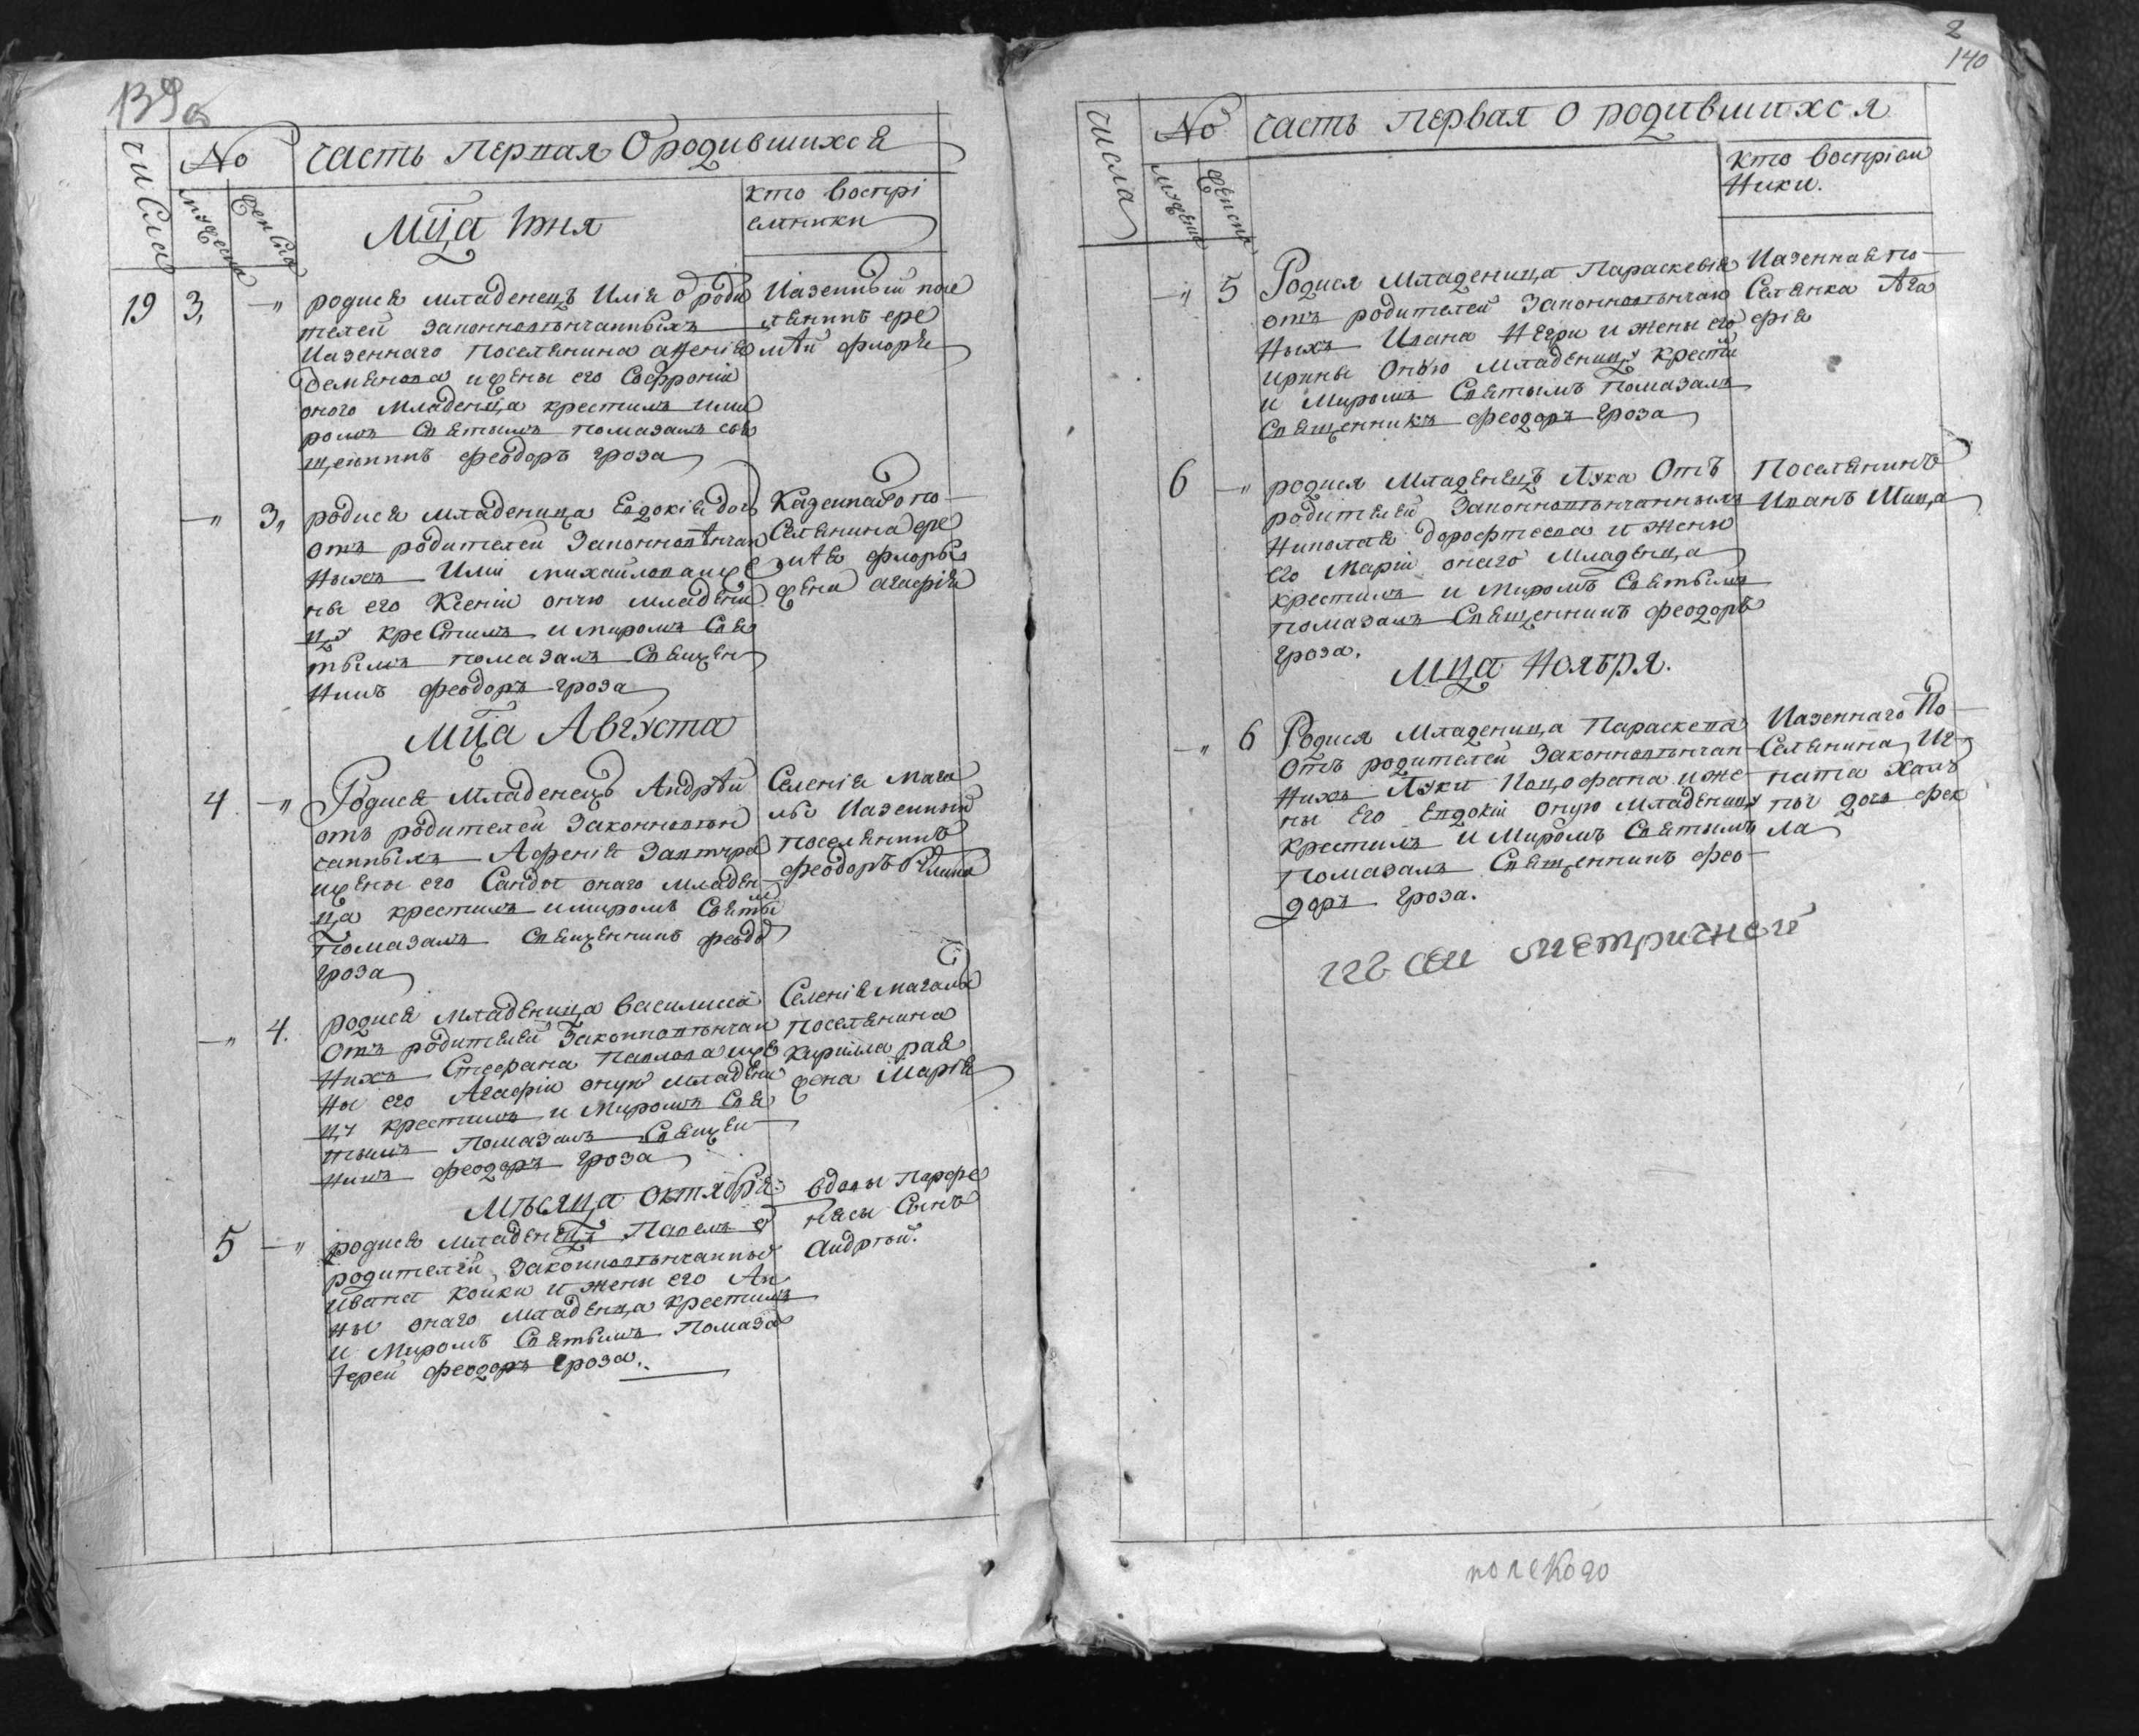 139 об
числа
No
мужеска
женска
Часть первая О родившихся
Мца Іюня
кто воспрі
емники
19 3, — родися младенецъ Илія о роди
телей законновѣнчанныхъ
казеннаго поселянина
Деменова и жены его Софроніи
оного младенца крестилъ и ми
ромъ Святымъ помазалъ свя
щенникъ феодоръ гроза
Казенный посе
лянинъ ере
мѣй флоря
— 3, родися младеница Евдокія дочь
отъ родителей законновѣнчан
ныхъ Иліи михайлова и же
ны его Ксеніи оную младени
цу крестилъ и миромъ Свя
тымъ помазалъ Священ
никъ феодоръ гроза
Казеннаго по
селянина ере
мѣя флоры
жена агафія
Мца Августа
4 — Родися младенецъ Андрѣй
отъ родителей законновѣн
чанныхъ
и жены его Санды онаго младен
ца крестилъ и миромъ Святым
помазалъ Священникъ феодо
гроза
Селенія Мага
лы казенный
поселянинъ
феодоръ
— 4. родися младеница василиса
отъ родителей Законновѣнчан
ныхъ Стефана Павлова и же
ны его Агафіи оную младени
цу крестилъ и Миромъ Свя
тымъ помазалъ Священ
никъ феодоръ гроза
Селенія магалы
поселянина
Кирилла рая
жена Марія
Мѣсяца октября
5 — родися младенецъ Павелъ о
родителей законновѣнчанны
ивана койки и жены его Ан
ны онаго младенца крестилъ
и Миромъ Святымъ помаза
Іерей феодоръ гроза.
вдовы парфе
Сынъ
Андрей.
2
140
числа
No
мужеска
женска
часть первая О родившихся
кто воспріем
ники.
— 5 Родися Младеница Параскевія
отъ родителей законновѣнчан
ныхъ Ивана Негри и жены его
ирины оную младеницу крести
и Миромъ Святымъ помазалъ
Священникъ феодоръ гроза
Казенная по
селянка Ага
фія
6 — родися Младенецъ Лука Отъ
родителей законновѣнчанныхъ
Николая дорофтеева и жены
его Маріи онаго младенца
крестилъ и Миромъ Святымъ
помазалъ Священникъ феодоръ
гроза.
Поселянинъ
Иванъ Мица
Мца Ноября.
— 6 Родися Младеница Параскева
отъ родителей Законновѣнчан
ныхъ Луки и же
ны Его Евдокіи оную Младеницу
крестилъ и Миромъ Святымъ
помазалъ Священникъ фео
доръ гроза.
Казеннаго По
селянина Иг
ната
дочь фек
ла
метричной